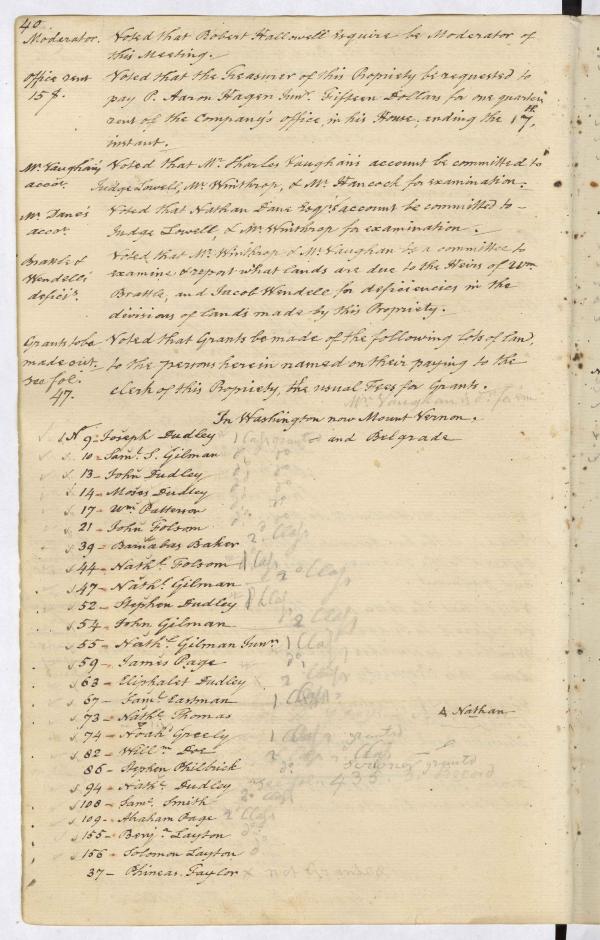 40.
Moderator. Voted that Robert Hallowell Esquire be Moderator of
this Meeting.
Office rent Voted that the Treasurer of this Propriety be requested to
15 $. pay P. Aaron Hagen Junr. Fifteen Dollars for one quarters
rent of the Company's office, in his House, ending the 17th,
instant.
Mr. Vaughan's Voted that Mr. Charles Vaughan's account be committed to
accot. Judge Lowell, Mr. Winthrop, & Mr. Hancock for examination.
Mr. Dane's Voted that Nathan Dane Esqr's account be committed to
accot. Judge Lowell, & Mr. Winthrop for examination.
Brattle & Voted that Mr. Winthrop & Mr. Vaughan be a committee to
Wendell's examine & report what lands are due to the Heirs of Wm
defics. Brattle, and Jacob Wendell for deficiencies in the
divisions of lands made by this Propriety.
Grants to be Voted that Grants be made of the following Lots of land,
made out. to the persons herein named on their paying to the
see fol. clerk of this Propriety, the usual Fees for Grants.
47.
Mr. Vaughan is
In Washington now Mount Vernon.
and Belgrade
No 9 - Joseph Dudley 1 Class grant
10 - Saml. S. Gilman do do
13 - John Dudley do do
14 - Moses Dudley do
17 - Wm. Patterson do
21 - John Folsom
39 - Barnabas Baker 2d Class
44 - Nathl. Folsom 1 Class
47 - Nathl. Gilman 2d Class
52 - Stephen Dudley 1 Class
54 - John Gilman 2
55 - Nathl. Gilman Junr. 1 Class
59 - James Page do
63 - Eliphalet Dudley x 2 Class
67 - Saml. Eastman 1 Class
73 - Nathl. Thomas Δ Nathan
74 - Noah Greely 1 Class granted
82 - Willm Doe 2 Class
86 - Stephen Philbrick do granted
94 - Nathl. Dudley see 435 Record
108 - Saml. Smith 2d Class
109 - Abraham Page 2 Class
155 - Benjn Layton do
156 - Solomon Layton do
37 - Phineas Taylor x not